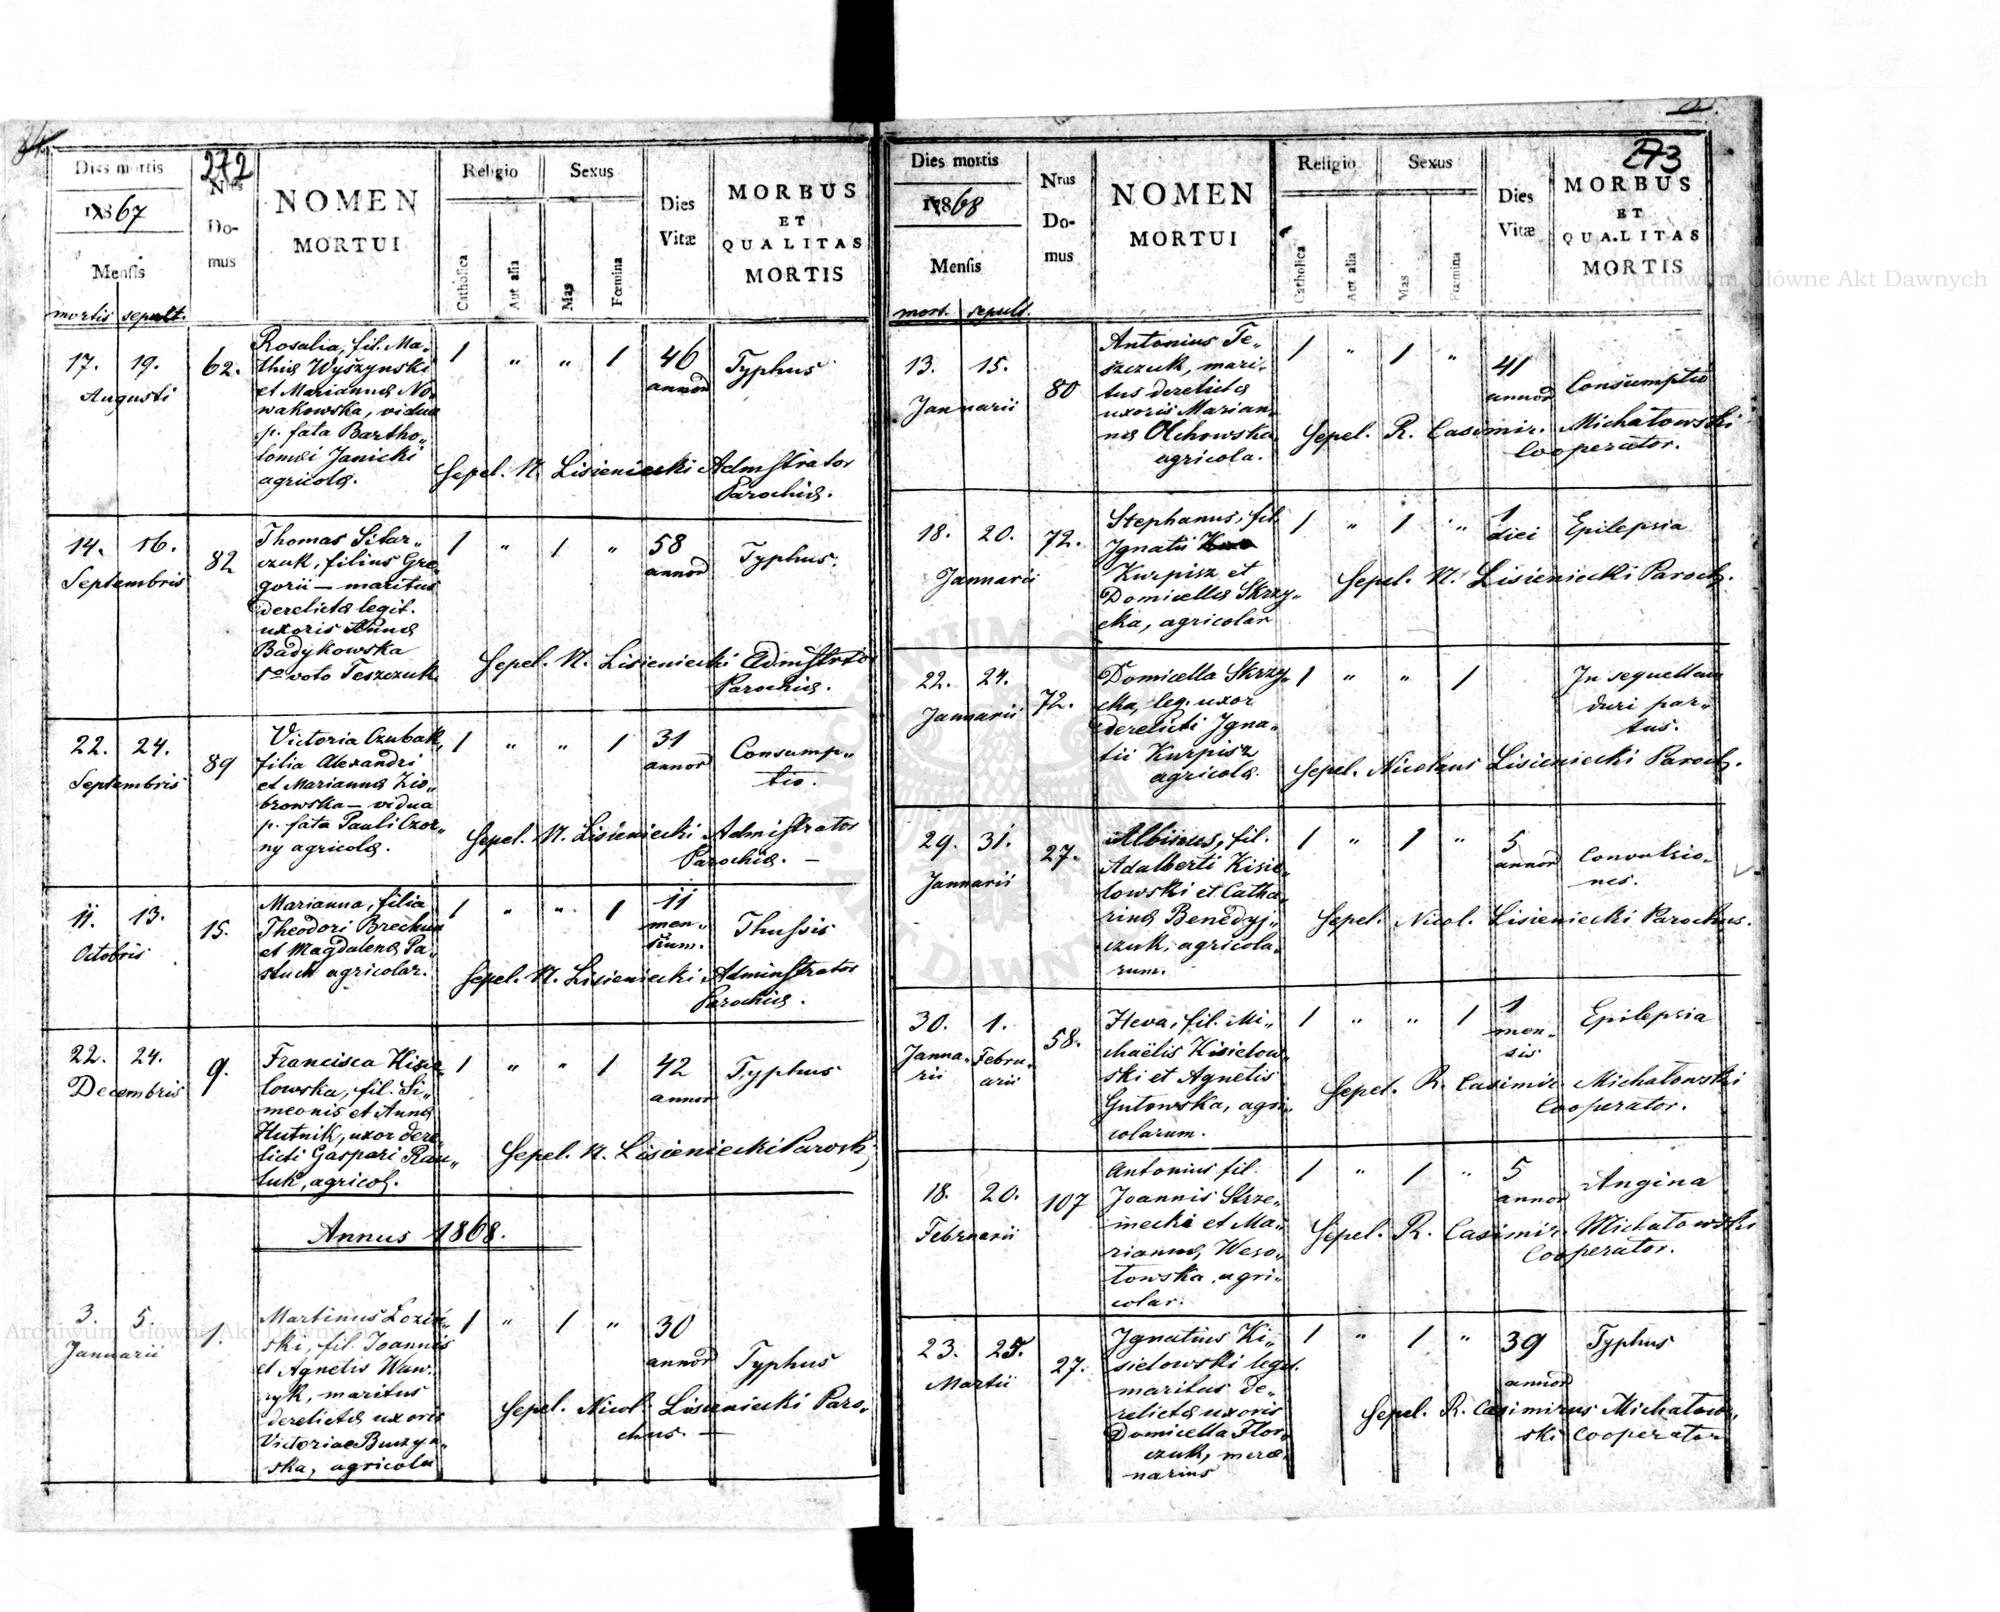 272
Dies mortis
1867
Mensis
mortis sepult.
Nrus
Do-
mus
NOMEN
MORTUI
Religio
Catholica
Aut alia
Sexus
Mas
Fœmina
Dies
Vitæ
MORBUS
ET
QUALITAS
MORTIS
17. 19.
Augusti
62.
Rosalia, fil. Ma„
thiæ Wyszynski
et Mariannæ No„
wakowska, vidua
p. fata Bartho„
lomæi Janicki
agricolæ.
1 „ „ 1
46
annor
Typhus
Sepel. N. Lisieniecki Admstrator
Parochiæ.
14. 16.
Septembris
82
Thomas Sitar„
czuk, filius Gre„
gorii — maritus
derelictæ legit.
uxoris Annæ
Badykowska
1º voto Teszczuk
1 „ 1 „
58
annor
Typhus.
Sepel. N. Lisieniecki Admstrator
Parochiæ.
22. 24.
Septembris
89
Victoria Czubak,
filia Alexandri
et Mariannæ Zio„
browska — vidua
p. fata Pauli Czor„
ny agricolæ.
1 „ „ 1
31
annor
Consump„
tio.
Sepel. N. Lisieniecki Admistrator
Parochiæ. —
11. 13.
Octobris
15.
Marianna, filia
Theodori Brechun
et Magdalenæ Pa„
stuch agricolar.
1 „ „ 1
11
men„
sium.
Thussis
Sepel. N. Lisieniecki Adminstrator
Parochiæ.
22. 24.
Decembris
9.
Francisca Kisie„
lowska, fil. Si„
meonis et Annæ
Hutnik, uxor dere„
licti Gaspari
tuk, agricol.
1 „ „ 1
42
annor
Typhus
Sepel. N. Lisieniecki Paroch.
Annus 1868.
3. 5.
Januarii
1.
Martinus Łoziń„
ski, fil. Joannis
et Agnetis Waw„
ryk, maritus
derelictæ uxoris
Victoriae Buszyn„
ska, agricola
1 „ 1 „
30
annor
Typhus
Sepel. Nicol. Lisieniecki Paro„
chus. —
273
Dies mortis
1868
Mensis
mort. sepult.
Nrus
Do-
mus
NOMEN
MORTUI
Religio
Catholica
Aut alia
Sexus
Mas
Fœmina
Dies
Vitæ
MORBUS
ET
QUALITAS
MORTIS
13. 15.
Januarii
80
Antonius Te„
szczuk, mari„
tus derelictæ
uxoris Marian„
næ Olchowska
agricola.
1 „ 1 „
41
annor
Consumptio
Sepel. R. Casimir. Michałowski
Cooperator.
18. 20.
Januarii
72.
Stephanus, fil.
Ignatii
Kurpisz et
Domicellæ Skrzy„
cka, agricolar
1 „ 1 „
1
diei
Epilepsia
Sepel. N. Lisieniecki Paroch.
22. 24.
Januarii
72.
Domicella Skrzy„
cka, leg. uxor
derelicti Igna„
tii Kurpisz
agricolæ.
1 „ „ 1
In sequellam
duri par„
tus.
Sepel. Nicolaus Lisieniecki Paroch.
29. 31.
Januarii
27.
Albinus, fil.
Adalberti Kisie„
lowski et Catha„
rinæ Benedyj„
czuk, agricola„
rum.
1 „ 1 „
5
annor
Convulsio„
nes.
Sepel. Nicol. Lisieniecki Parochus.
30. 1.
Janua„ Febru„
rii arii
58.
Heva, fil. Mi„
chaëlis Kisielow„
ski et Agnetis
Gutowska, agri„
colarum.
1 „ „ 1
1
men„
sis
Epilepsia
Sepel. R. Casimir. Michałowski
Cooperator.
18. 20.
Februarii
107
Antonius fil.
Joannis Strze„
mecki et Ma„
riannæ Weso„
łowska, agri„
colar.
1 „ 1 „
5
annor
Angina
Sepel. R. Casimir. Michałowski
Cooperator.
23. 25.
Martii
27.
Ignatius Ki„
sielowski legit.
maritus de„
relictæ uxoris
Domicella Flor„
czuk, merce„
narius
1 „ 1 „
39
annor
Typhus
Sepel. R. Casimirus Michałow„
ski Cooperator
Archiwum Główne Akt Dawnych
Archiwum Główne Akt Dawnych